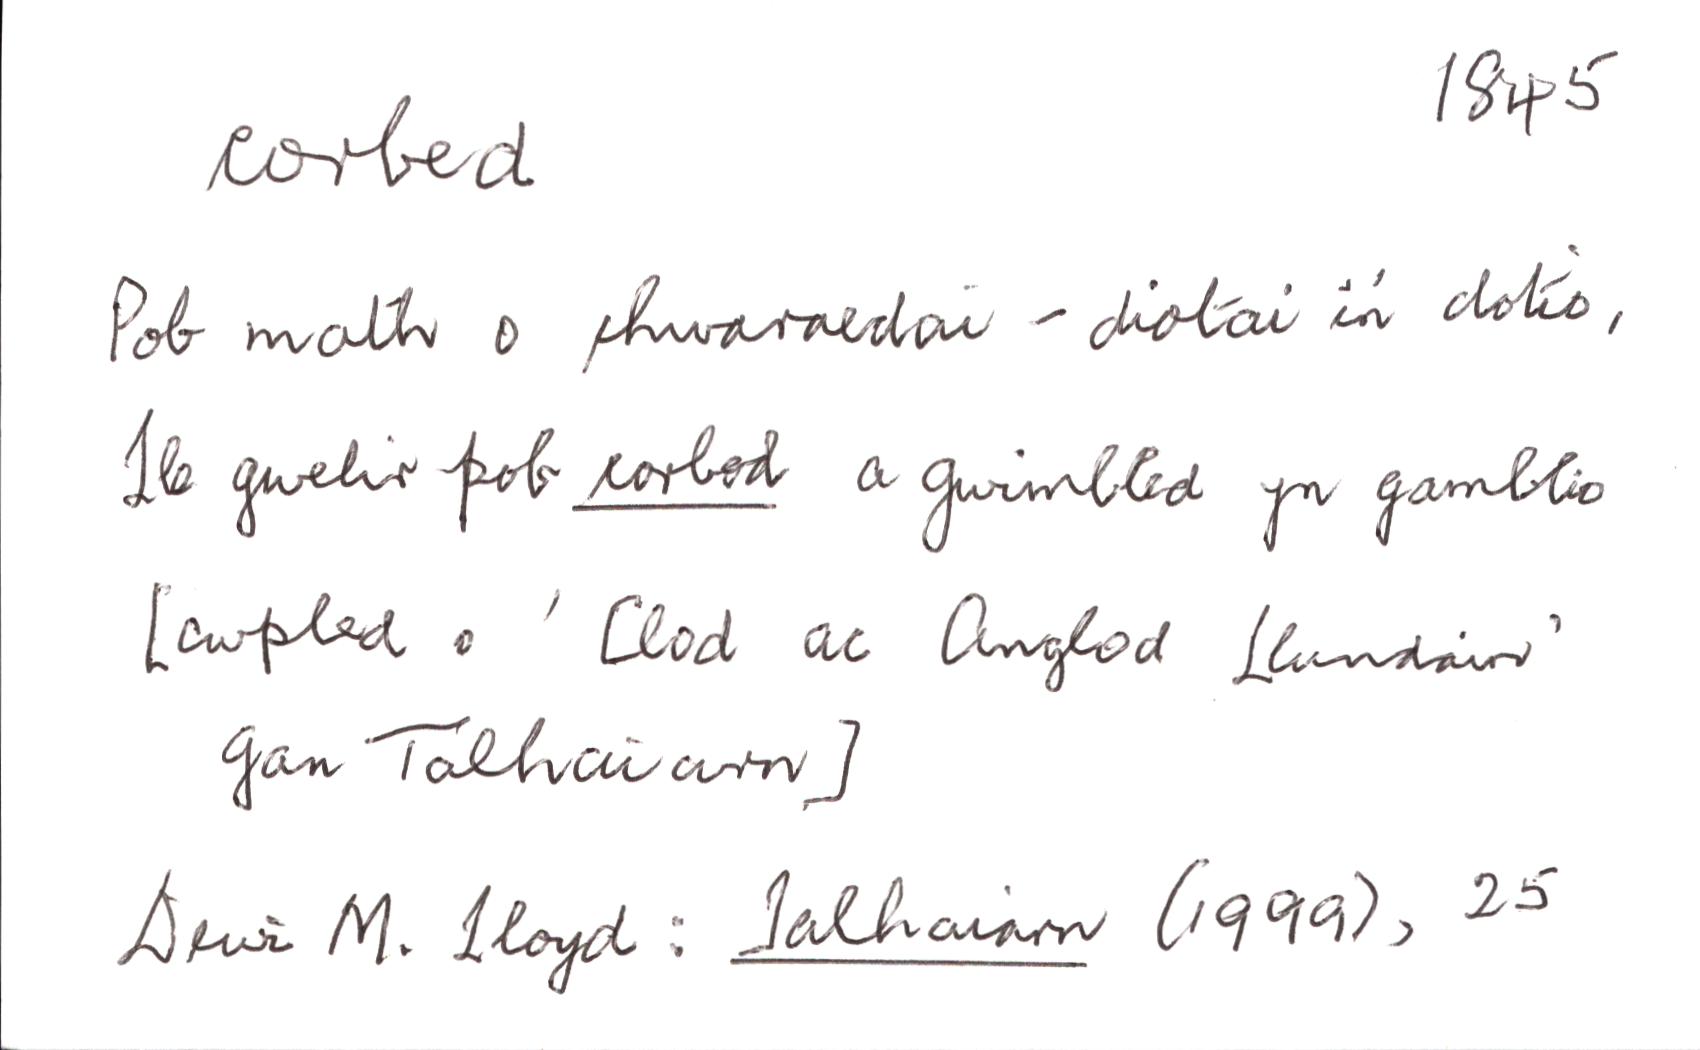 1845
corbed
Pob math o chwaraedai - diotai i'n dotio,
Lle gwelir pob corbed a gwimbled yn gamblio
[cwpled o 'Clod ac Anglod Llundain'
gan Talhaiarn]
Dewi M. Lloyd: Talhaiarn (1999), 25